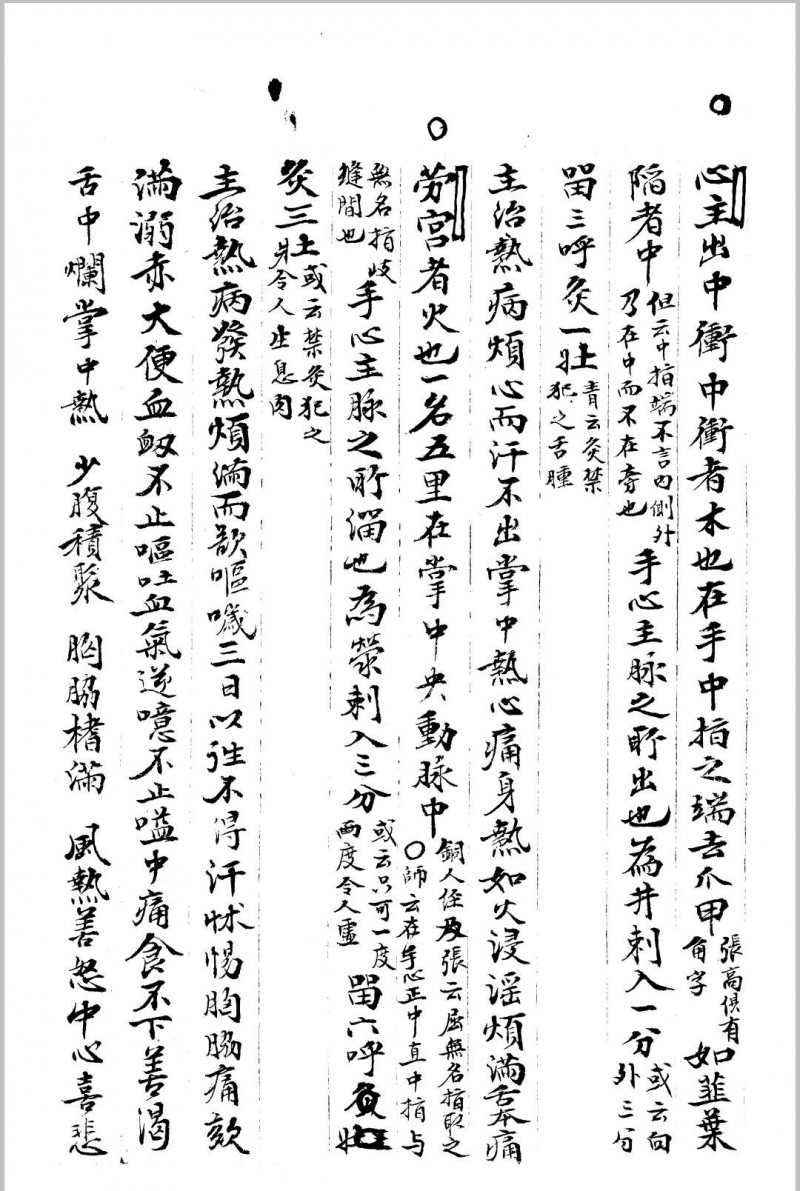 心主出中衝中衝者木也在手中指之端去爪甲張高俱有角字如韮葉
陷者中但云中指端不言内側外乃在中而不在旁也手心主脉之所出也為井刺入一分或云向外三分
畱三呼灸一壮青云灸禁犯之舌腫
主治熱病煩心而汗不出掌中熱心痛身熱如火浸淫煩滿舌本痛
労宮者火也一名五里在掌中央動脉中銅人経及張云屈無名指取之〇師云在手心正中直中指与
無名指歧縫間也手心主脉之所溜也為滎刺入三分或云只可一度両度令人虛畱六呼灸壮
灸三壮或云禁灸犯之令人生息肉
主治熱病發熱煩滿而欲嘔噦三日以往不得汗怵惕胸脇痛欬
滿溺赤大便血衂不止嘔吐血氣逆噫不止嗌中痛食不下善渴
舌中爛掌中熱 少腹積聚 胸脇榰滿 風熱善怒中心喜悲